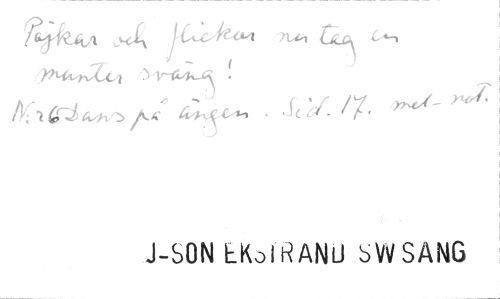 Pojkar och flickor nu tag en
munter sväng!
N:r 6 Dans på ängen. Sid. 17. mel-not.
J-SON EKSTRAND SW SANG